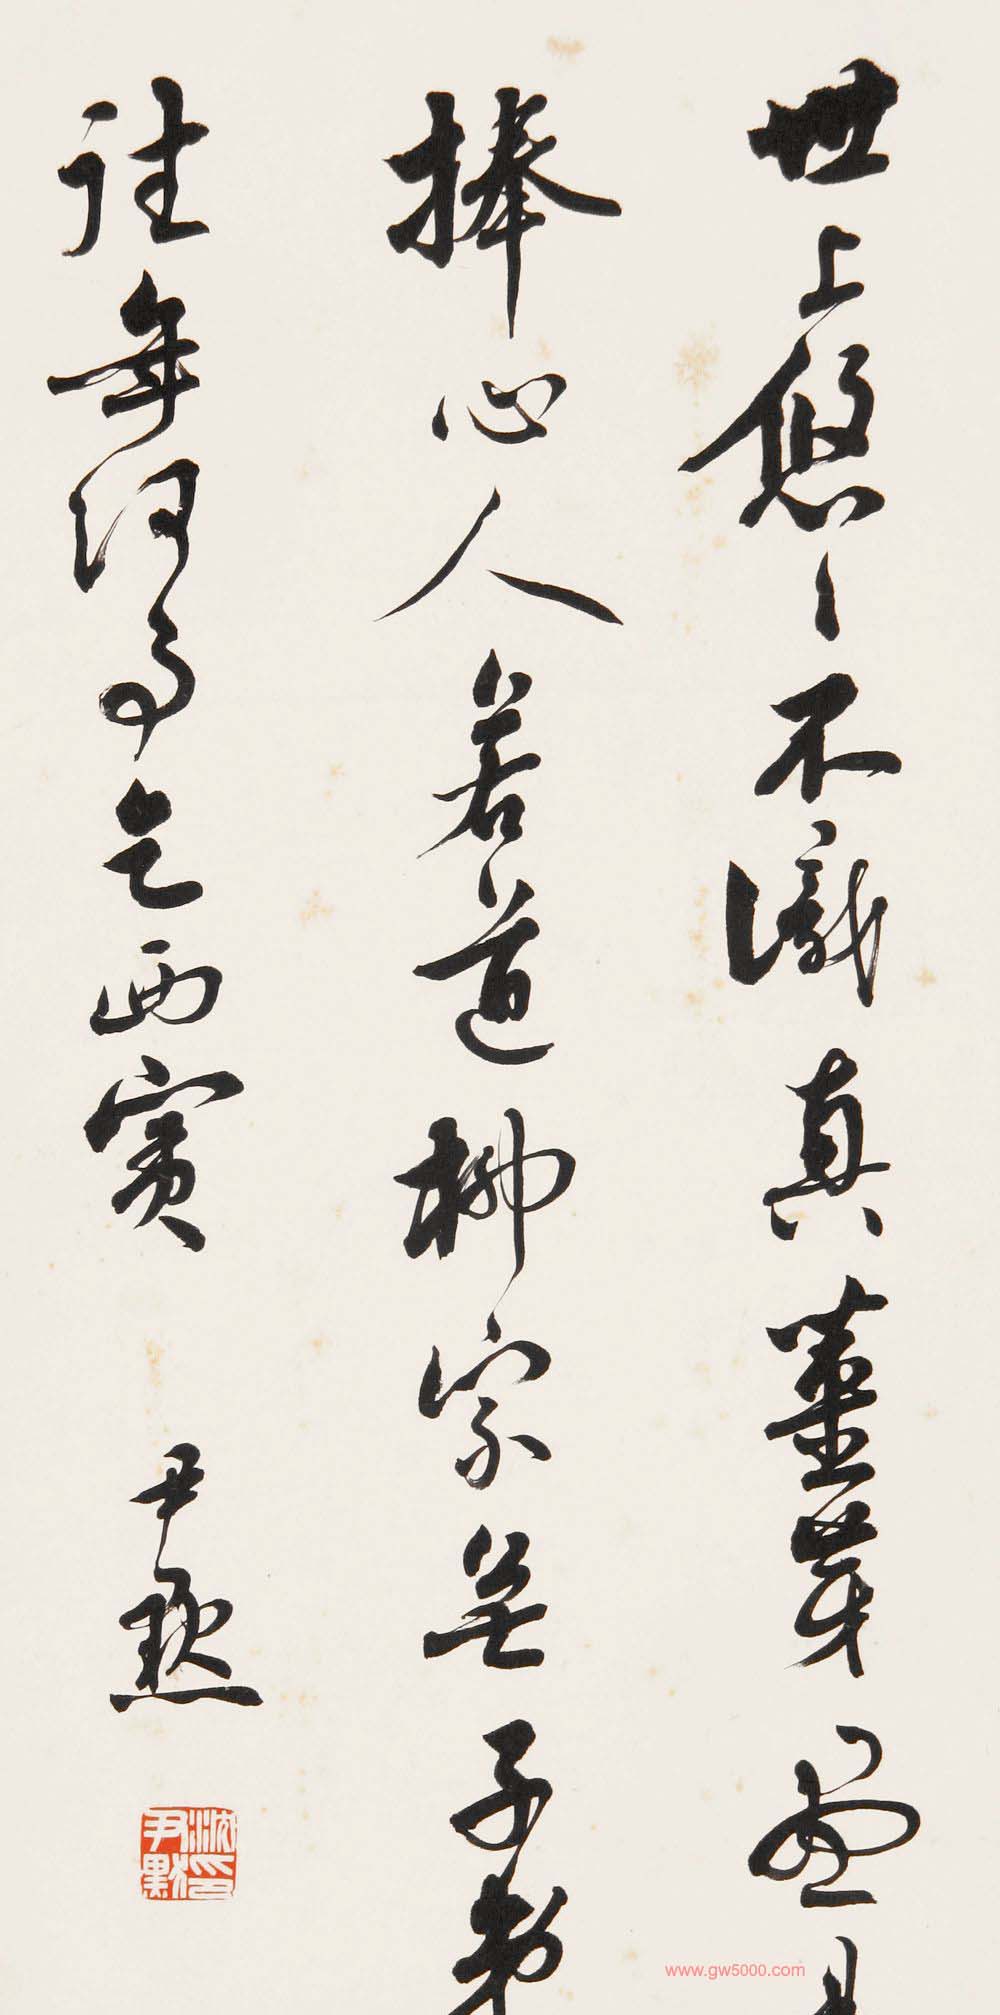 世上悠々不識真薑芽盡是
捧心人若道柳家無子弟
往年何事乞西賓
尹默
沈印尹默
www.gw5000.com